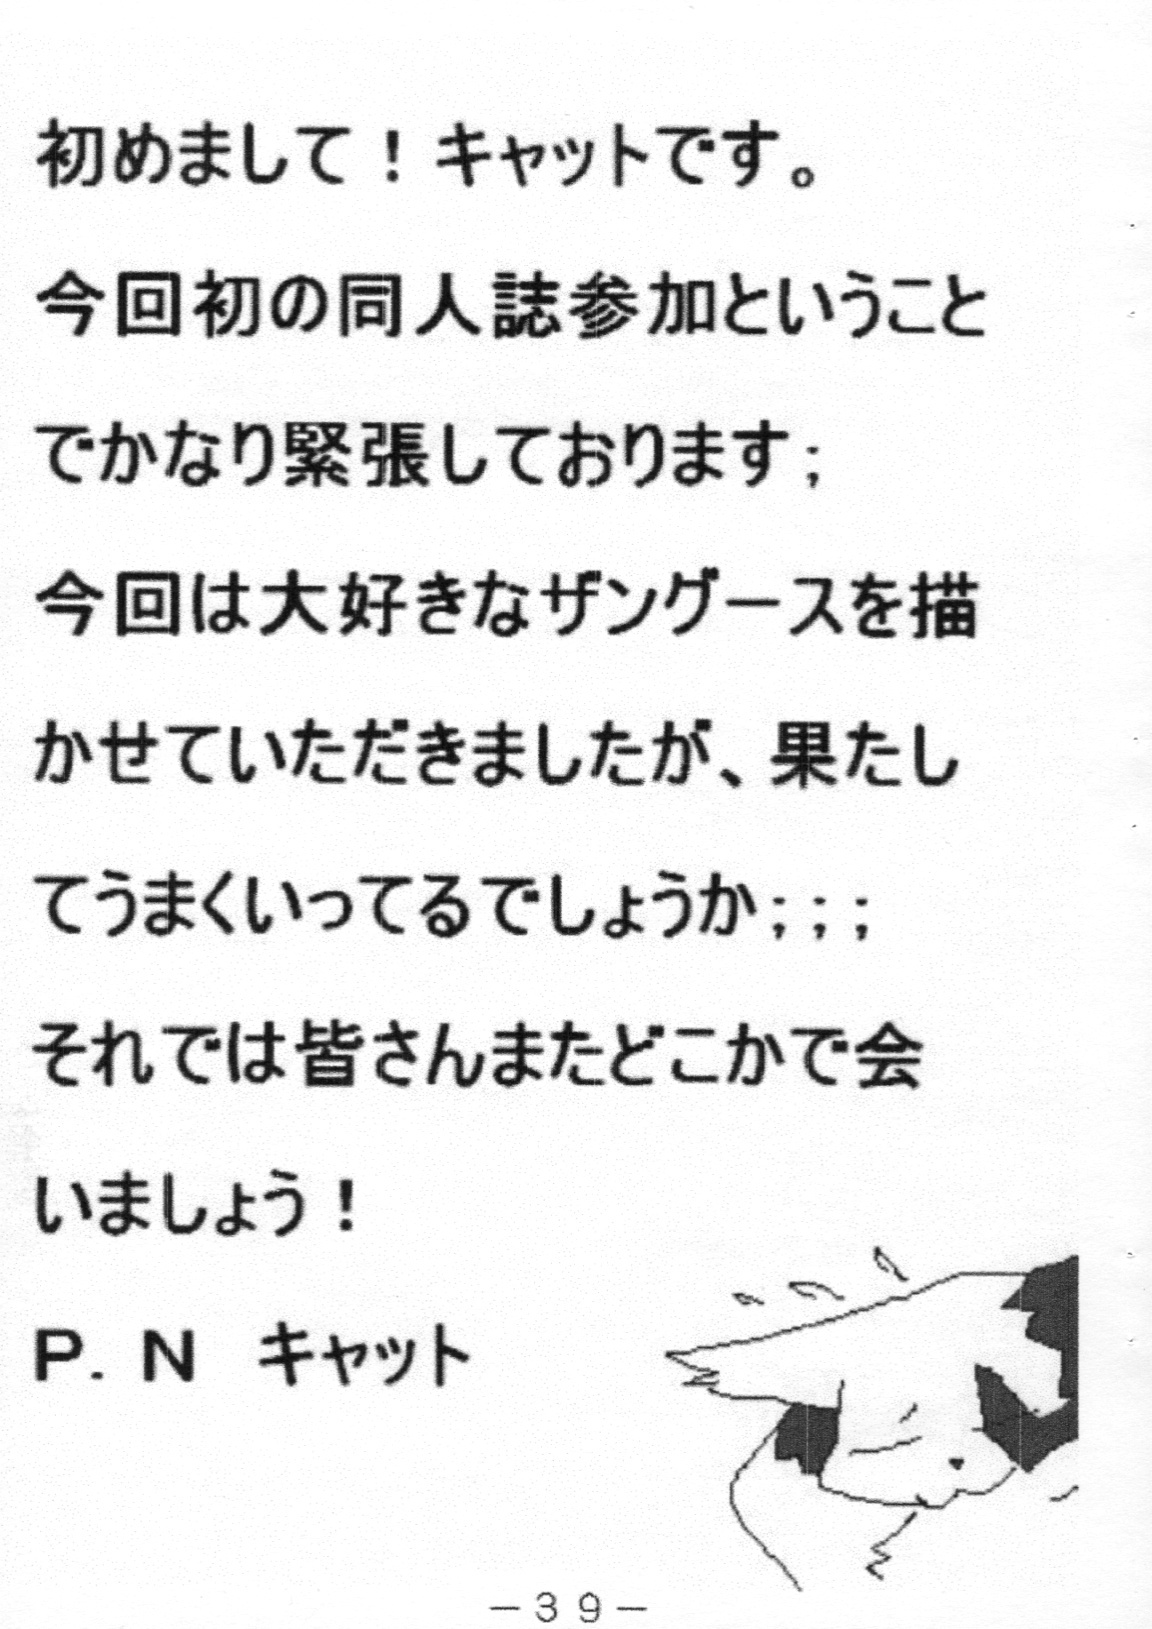 初めまして！キャットです。
今回初の同人誌参加ということ
でかなり緊張しております；
今回は大好きなザングースを描
かせていただきましたが、果たし
てうまくいってるでしょうか；；；
それでは皆さんまたどこかで会
いましょう！
Ｐ．Ｎ　キャット
－３９－